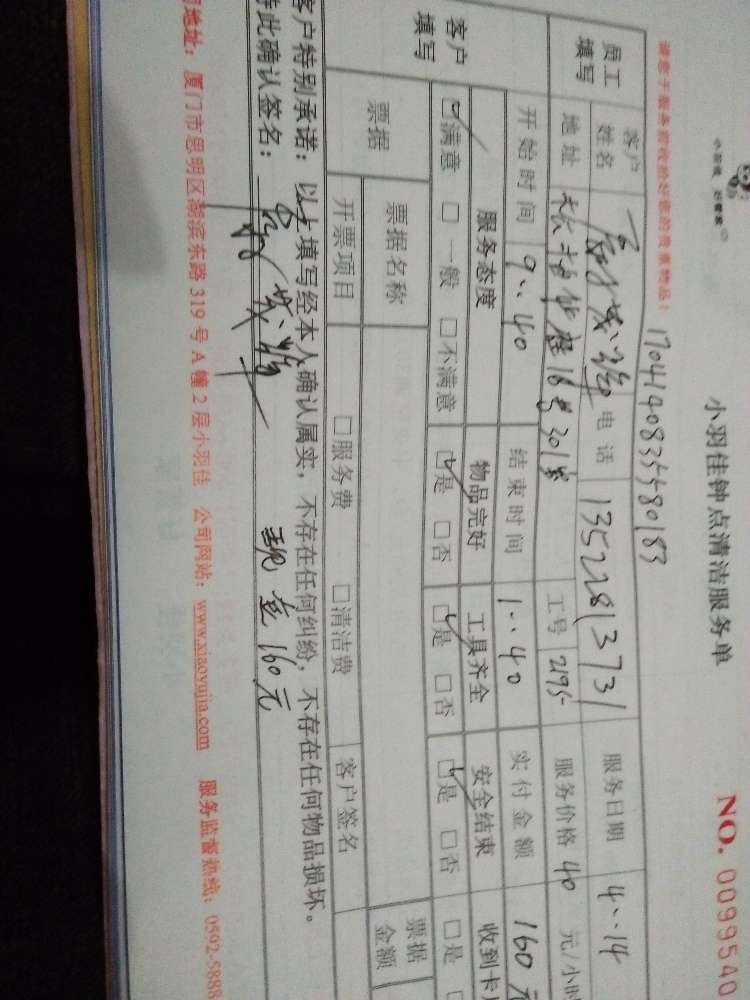 小羽佳钟点清洁服务单 NO. 0099540
17041408355580183
员工填写 客户姓名 电话 13522813731 服务日期 4..14
地址 16号301室 工号 2195 服务价格 40 元/小时
开始时间 9..40 结束时间 1..40 实付金额 160元
客户填写 服务态度 物品完好 工具齐全 安全结束 收到卡
☑满意 □一般 □不满意 ☑是 □否 ☑是 □否 ☑是 □否 □是
票据 票据名称 票据金额
开票项目 □服务费 □清洁费 客户签名
客户特别承诺：以上填写经本人确认属实，不存在任何纠纷，不存在任何物品损坏。
特此确认签名： 160元
地址：厦门市思明区湖滨东路 319 号 A 幢 2 层小羽佳 公司网站：www.xiaoyujia.com 服务监督热线：0592-5888